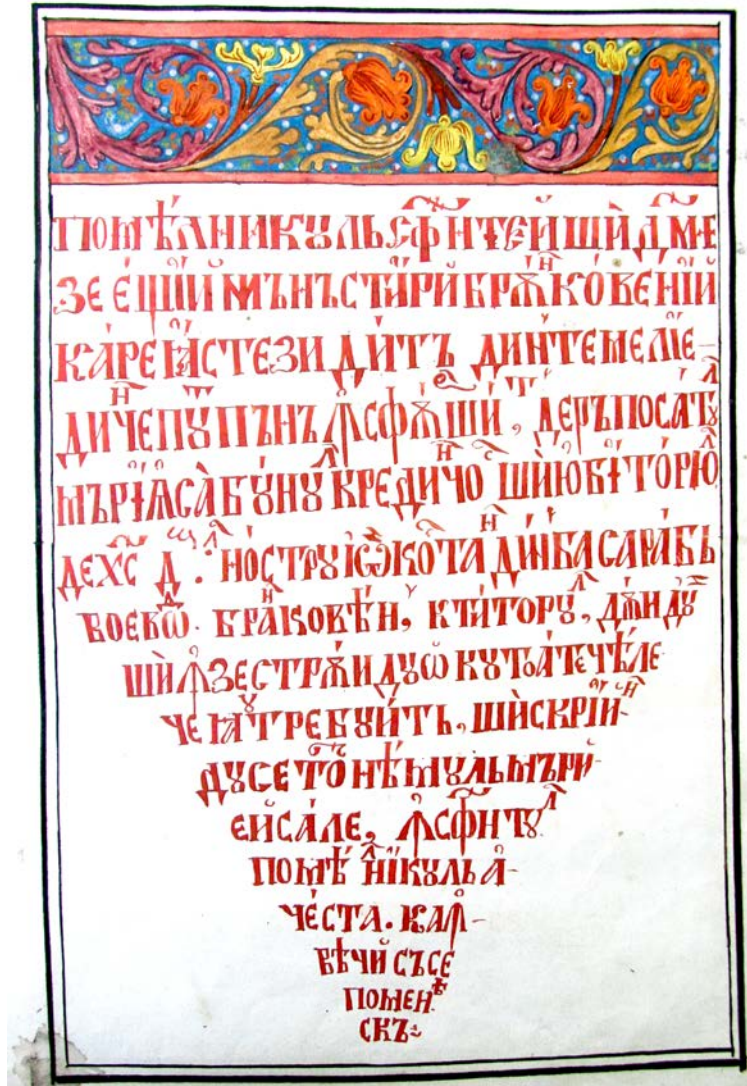 ПОМѢЛНИКꙊЛЬ СФ҃НТЕЙ Шѝ ДМ҃Е
ЗЕЕ́ЩІЙ МЪНЪСТИ́РЙ БРѪКО́ВЕНІЙ
КА́РЕ ꙖСТЕ ЗИДИ́ТЪ ДИНТЕМЕЛІЕ-
ДИЧЕПꙊПЪНЪ ꙞСФѪШИ́, ДЕРЪПОСАТꙊ
МЪРІѦСА̀ БꙊ́НꙊ КРЕДИЧО ШЍЮБИТО́РЮ
ДЕ ХС Д. НО́СТРꙊ ІѠ КО́СТАДИ́Н БАСАРА́БЬ
ВОЕВѠД. БРА́НКОВѢ́Н, КТИ́ТОРꙊ,
ШЍ ꙞЗЕСТРѪ́ИДꙊѠ КꙊ ТОАТЕ ЧѢ́ЛЕ
ЧЕ ꙖꙊ ТРЕБꙊИ́ТЬ, ШЍ СКРІЙН-
ДꙊСЕ ТО́Т НѢ́МꙊЛЬ МЪРИ-
ЕЙ СА́ЛЕ, ꙞСФ҃НТꙊЛ
ПОМѢ́ЛНІКꙊЛЬ А-
ЧЕ́СТА. КА ꙞН-
ВѢЧЙ СЪ СЕ
ПОМЕНѢ
СКЪ